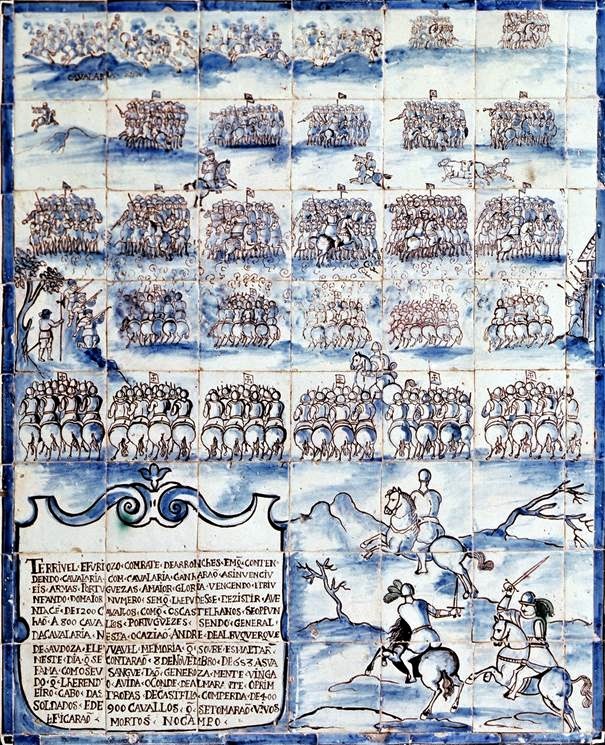 CAVALARIA
TERRIVEL EFURIOZO COMBATE DEARRONCHES EMQ CONTEN
DENDO CAVALARIA COM CAVALARIA GANHARAO ASINVENCIV
EIS ARMAS PORTVGUEZAS AMAIOR GLORIA VENCENDO ITRIV
NFANDO DOMAIOR NUMERO SEMQ LAEFUDESSE DEZISTIR AVE
NTAGE DE 1200 CAVALLOS COMQ OSCASTELHANOS SEOPPUN
HAO A 800 CAVALLOS PORTUGUEZES SENDO GENERAL
DACAVALARIA NESTA OCAZIAO ANDRE DEALBUQUERQUE
DE MEMORIA Q SOUBE ESMALTAR
NESTE DIA Q SE CONTARAO 8 DENOVEMBRO DE ASVA
FAMA COMOSEV SANGVE TAO GENEROZAMENTE VINGA
DO Q AVIDA OCONDE DEAMARANTE OPRIM
EIRO CABO DAS TROPAS DECASTELLA COMPERDA DE 400
SOLDADOS EDE 900 CAVALLOS Q SETOMARAO VIVOS
EFICARAO MORTOS NOCAMPO